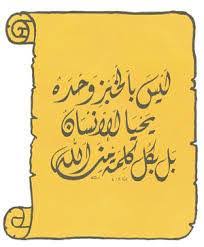 ليس بالخبز وحده
يحيا الإنسان
بل بكل كلمة من الله